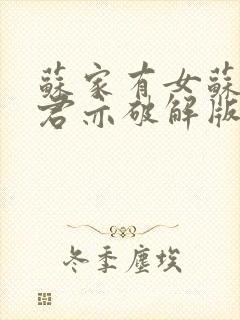 蘇家有女蘇
君亦破解版
冬季塵埃